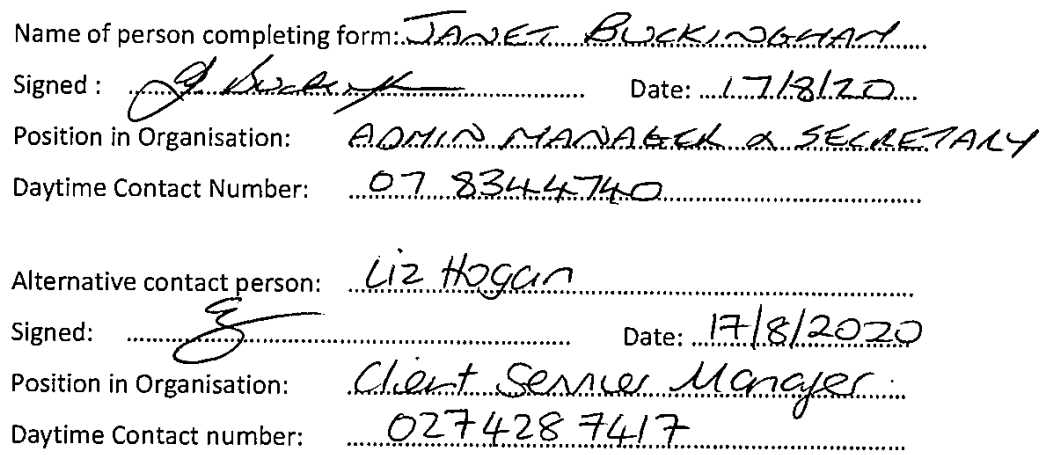 Name of person completing form: JANET BUCKINGHAM
Signed : J Buck Date: 17/8/20
Position in Organisation: ADMIN MANAGER & SECRETARY
Daytime Contact Number: 07 8344740
Alternative contact person: Liz Hogan
Signed: Date: 17/8/2020
Position in Organisation: Client Services Manager
Daytime Contact number: 0274287417